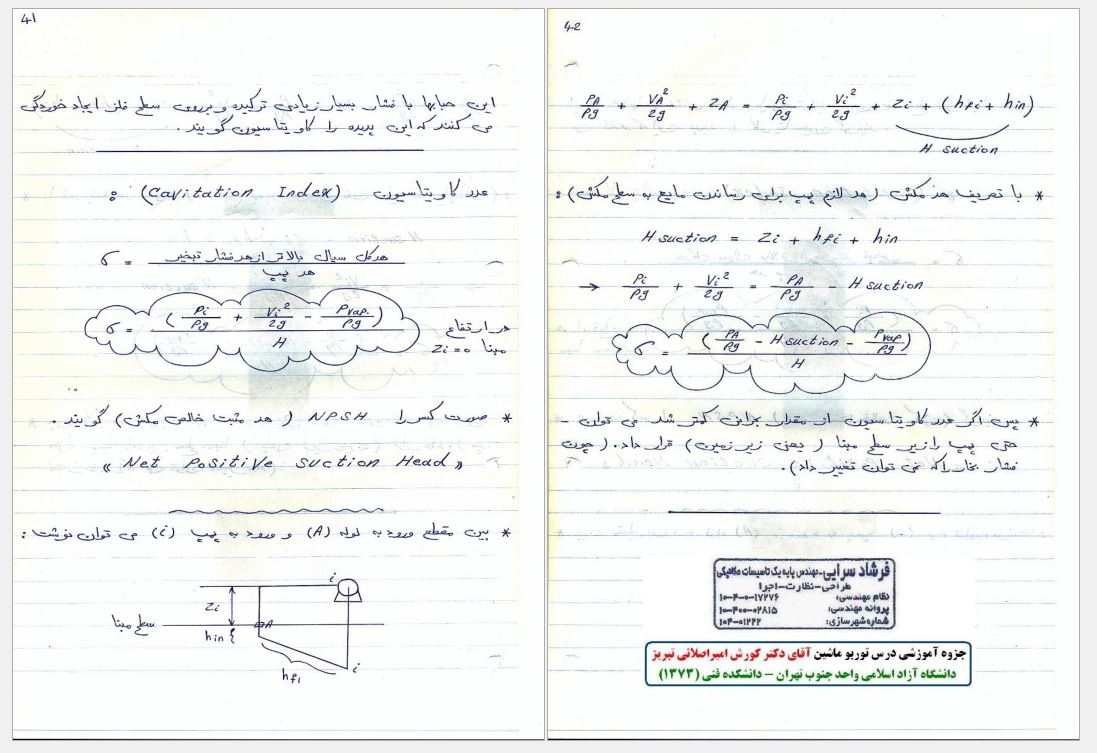 41
این حبابها با فشار بسیار زیادی ترکیده و برروی سطح فلز ایجاد خوردگی
می کنند که این پدیده را کاویتاسیون گویند.
عدد کاویتاسیون (Cavitation Index) :
σ = هد کل سیال بالاتر از هد فشار تبخیر / هد پمپ
σ = (Pi/ρg + Vi²/2g − Pvap./ρg) / H
در ارتفاع
مبنا Zi=0
* صورت کسر را NPSH (هد مثبت خالص مکش) گویند.
« Net Positive suction Head »
* بین مقطع ورود به لوله (A) و ورود به پمپ (i) می توان نوشت:
i
Zi
سطح مبنا
A
hin
i
hfi
42
PA/ρg + VA²/2g + ZA = Pi/ρg + Vi²/2g + Zi + (hfi + hin)
H suction
* با تعریف هد مکش (هد لازم پمپ برای رساندن مایع به سطح مکش):
H suction = Zi + hfi + hin
→ Pi/ρg + Vi²/2g = PA/ρg − H suction
σ = (PA/ρg − H suction − Pvap/ρg) / H
* پس اگر عدد کاویتاسیون از مقدار بحرانی کمتر شد می توان
حتی پمپ را زیر سطح مبنا (یعنی زیر زمین) قرار داد. (چون
فشار بخار را که نمی توان تغییر داد).
فرشاد سرایی-مهندس پایه یک تاسیسات مکانیکی
طراحی-نظارت-اجرا
نظام مهندسی: ۱۰-۴-۰-۱۷۲۷۶
پروانه مهندسی: ۱۰-۴۰۰-۰۲۸۱۵
شماره شهرسازی: ۱۰۴-۰۱۲۲۲
جزوه آموزشی درس توربو ماشین آقای دکتر کورش امیراصلانی تبریز
دانشگاه آزاد اسلامی واحد جنوب تهران – دانشکده فنی (۱۳۷۳)